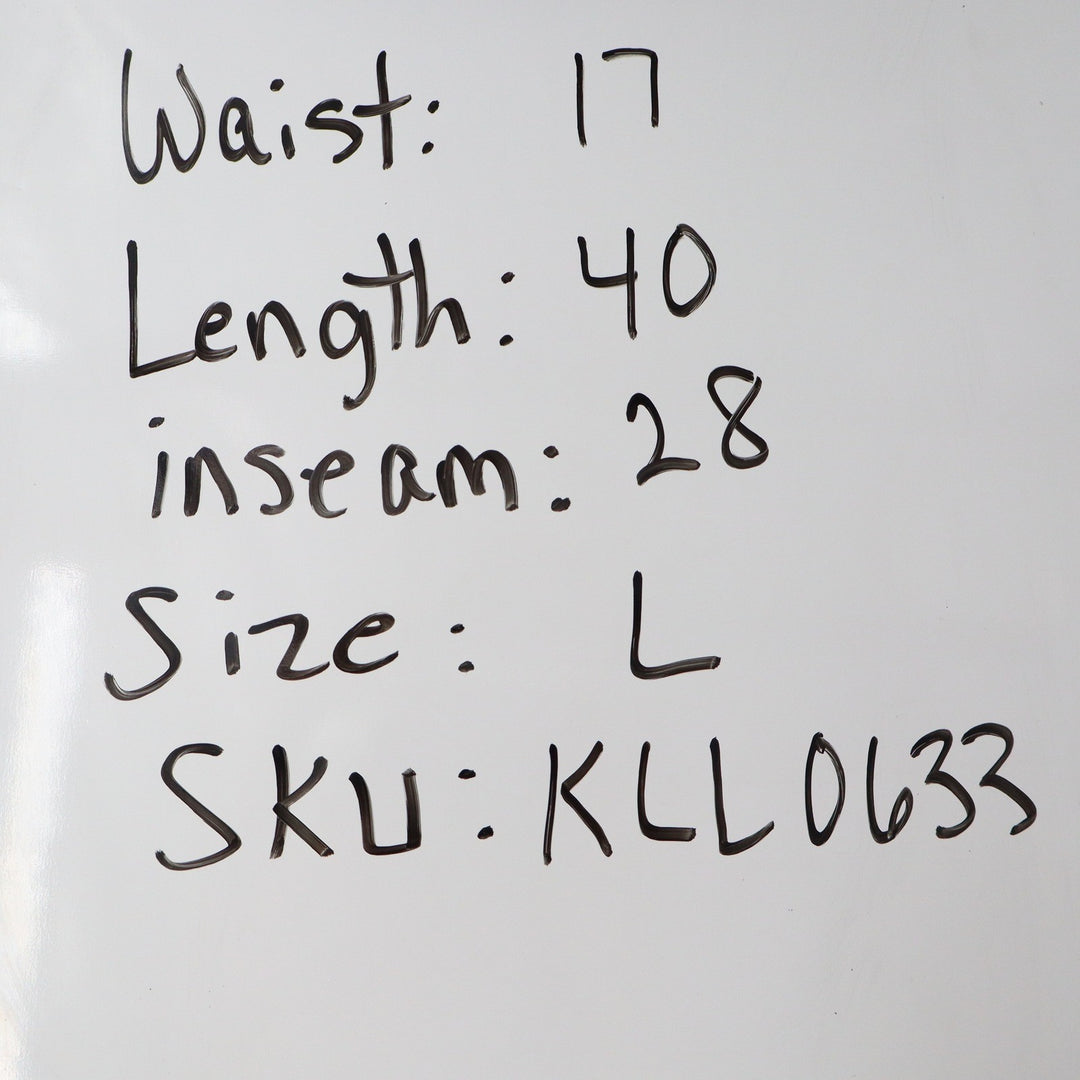 Waist: 17
Length: 40
inseam: 28
Size: L
SKU: KLL0633